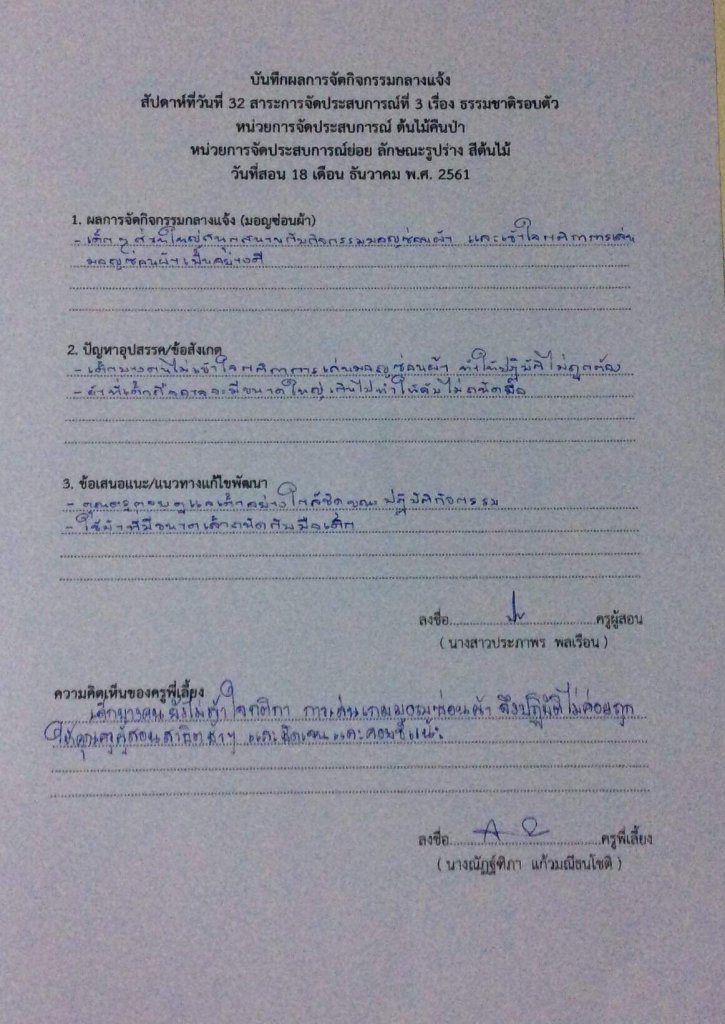 บันทึกผลการจัดกิจกรรมกลางแจ้ง
สัปดาห์ที่วันที่ 32 สาระการจัดประสบการณ์ที่ 3 เรื่อง ธรรมชาติรอบตัว
หน่วยการจัดประสบการณ์ ต้นไม้คืนป่า
หน่วยการจัดประสบการณ์ย่อย ลักษณะรูปร่าง สีต้นไม้
วันที่สอน 18 เดือน ธันวาคม พ.ศ. 2561
1. ผลการจัดกิจกรรมกลางแจ้ง (มอญซ่อนผ้า)
- เด็กๆ ส่วนใหญ่สนุกสนานกับกิจกรรมมอญซ่อนผ้า และเข้าใจกติกาการเล่น
มอญซ่อนผ้าเป็นอย่างดี
2. ปัญหาอุปสรรค/ข้อสังเกต
- เด็กบางคนไม่เข้าใจกติกาการเล่นมอญซ่อนผ้า ทำให้ปฏิบัติไม่ถูกต้อง
- ผ้าที่เด็กถืออาจจะมีขนาดใหญ่เกินไปทำให้จับไม่ถนัดมือ
3. ข้อเสนอแนะ/แนวทางแก้ไขพัฒนา
- คุณครูคอยดูแลเด็กอย่างใกล้ชิดขณะปฏิบัติกิจกรรม
- ใช้ผ้าที่มีขนาดเล็กถนัดกับมือเด็ก
ลงชื่อ ครูผู้สอน
( นางสาวประภาพร พลเรือน )
ความคิดเห็นของครูพี่เลี้ยง
เด็กบางคนยังไม่เข้าใจกติกา การเล่นเกมมอญซ่อนผ้า จึงปฏิบัติไม่ค่อยถูก
ให้คุณครูผู้สอนสาธิตช้าๆ และชัดเจน และคอยชี้แนะ
ลงชื่อ ครูพี่เลี้ยง
( นางณัฏฐ์ฑิภา แก้วมณีธนโชติ )